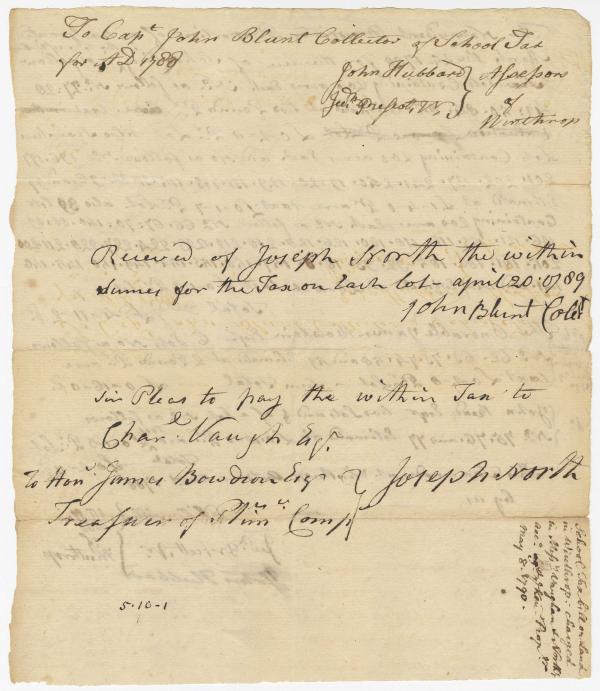 To Capt John Blunt Collector of School Tax
for AD 1788
John Hubbard } Assessors
Jedh Prescott Jr } of
Winthrop
Receved of Joseph North the within
sumes for the Tax on Each lot - april 20. 1789
John Blunt Colect
Sir Pleas to pay the within Tax to
Charl Vaugh Esqr
To Honl James Bowdion Esqr } Joseph North
Treasurer of Plimc Comp
5-10-1
School Tax bill on Land
in Winthrop: charged
in Messrs Vaughan & North's
acc. Prop
May 8. 1790.